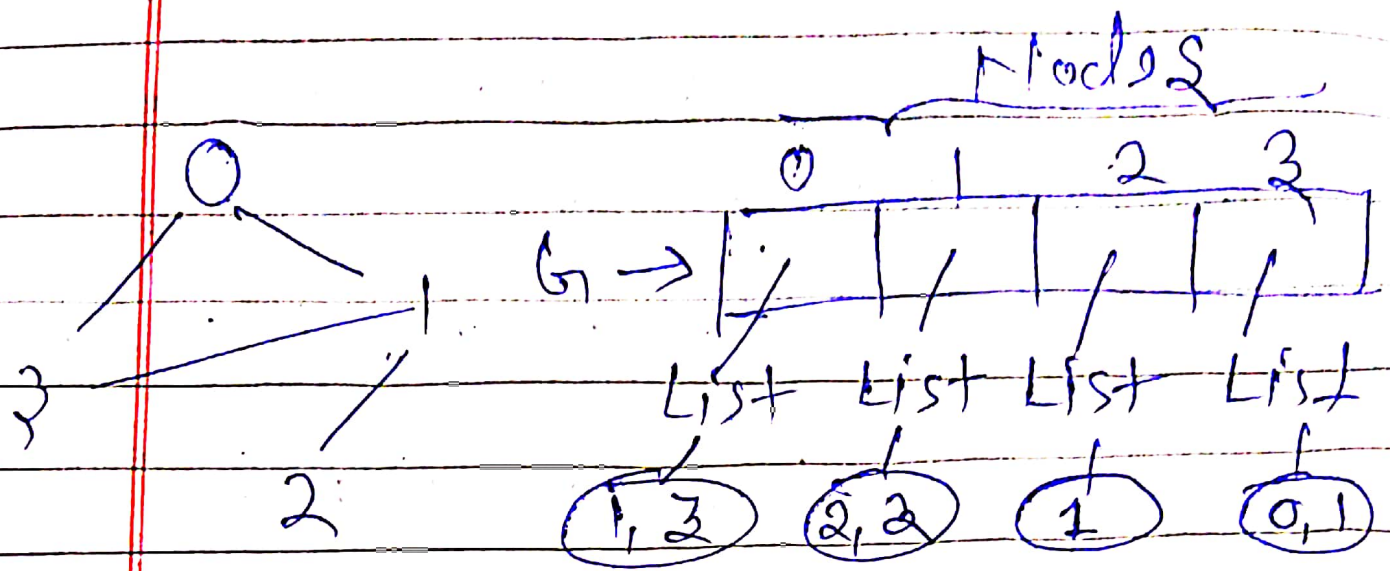 Nodes
0
0 1 2 3
G →
1
3
List List List List
2
1, 3 2, 3 1 0, 1